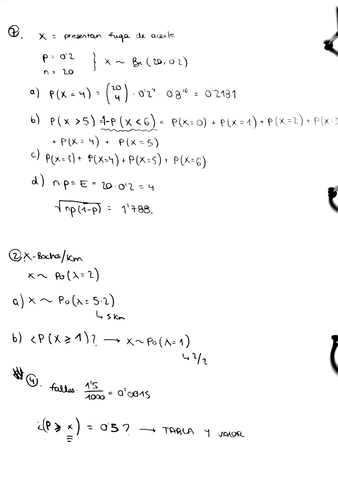 ① X = presentan fuga de aceite
p = 0'2
n = 20 } X ~ Bn (20, 0'2)
a) P(X = 4) = (20 4) · 0'2⁴ · 0'8¹⁶ = 0'2181
b) P(X > 5) = 1-P(X < 6) = P(X=0) + P(X=1) + P(X=2) + P(X=3)
+ P(X=4) + P(X=5)
c) P(X=3) + P(X=4) + P(X=5) + P(X=6)
d) n p = E = 20 · 0'2 = 4
√np(1-p) = 1'788.
② X-Baches/Km
X ~ Po (λ=2)
a) X ~ Po (λ = 5·2)
↳ 5 km
b) ¿P(X ≥ 1)? → X ~ Po (λ=1)
↳ 2/2
④ fallos 1'5/1000 = 0'0015
¿(P ≥ x) = 0'5? → TABLA Y VALOR